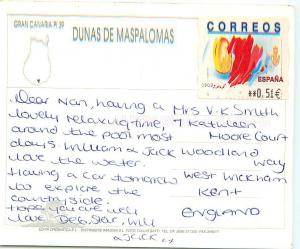 GRAN CANARIA Pl 39
DUNAS DE MASPALOMAS
CORREOS
ESPAÑA
**0.51€
Dear Nan, having a
lovely relaxing time,
around the pool most
days William & Jack
love the water.
Having a car tomorrow
to explore the
countryside.
hope you are well
love Deb, Star, Will
& Jack
Mrs V.K Smith
7 Kathleen
Moore Court
Woodland
Way
West Wickham
Kent
ENGLAND